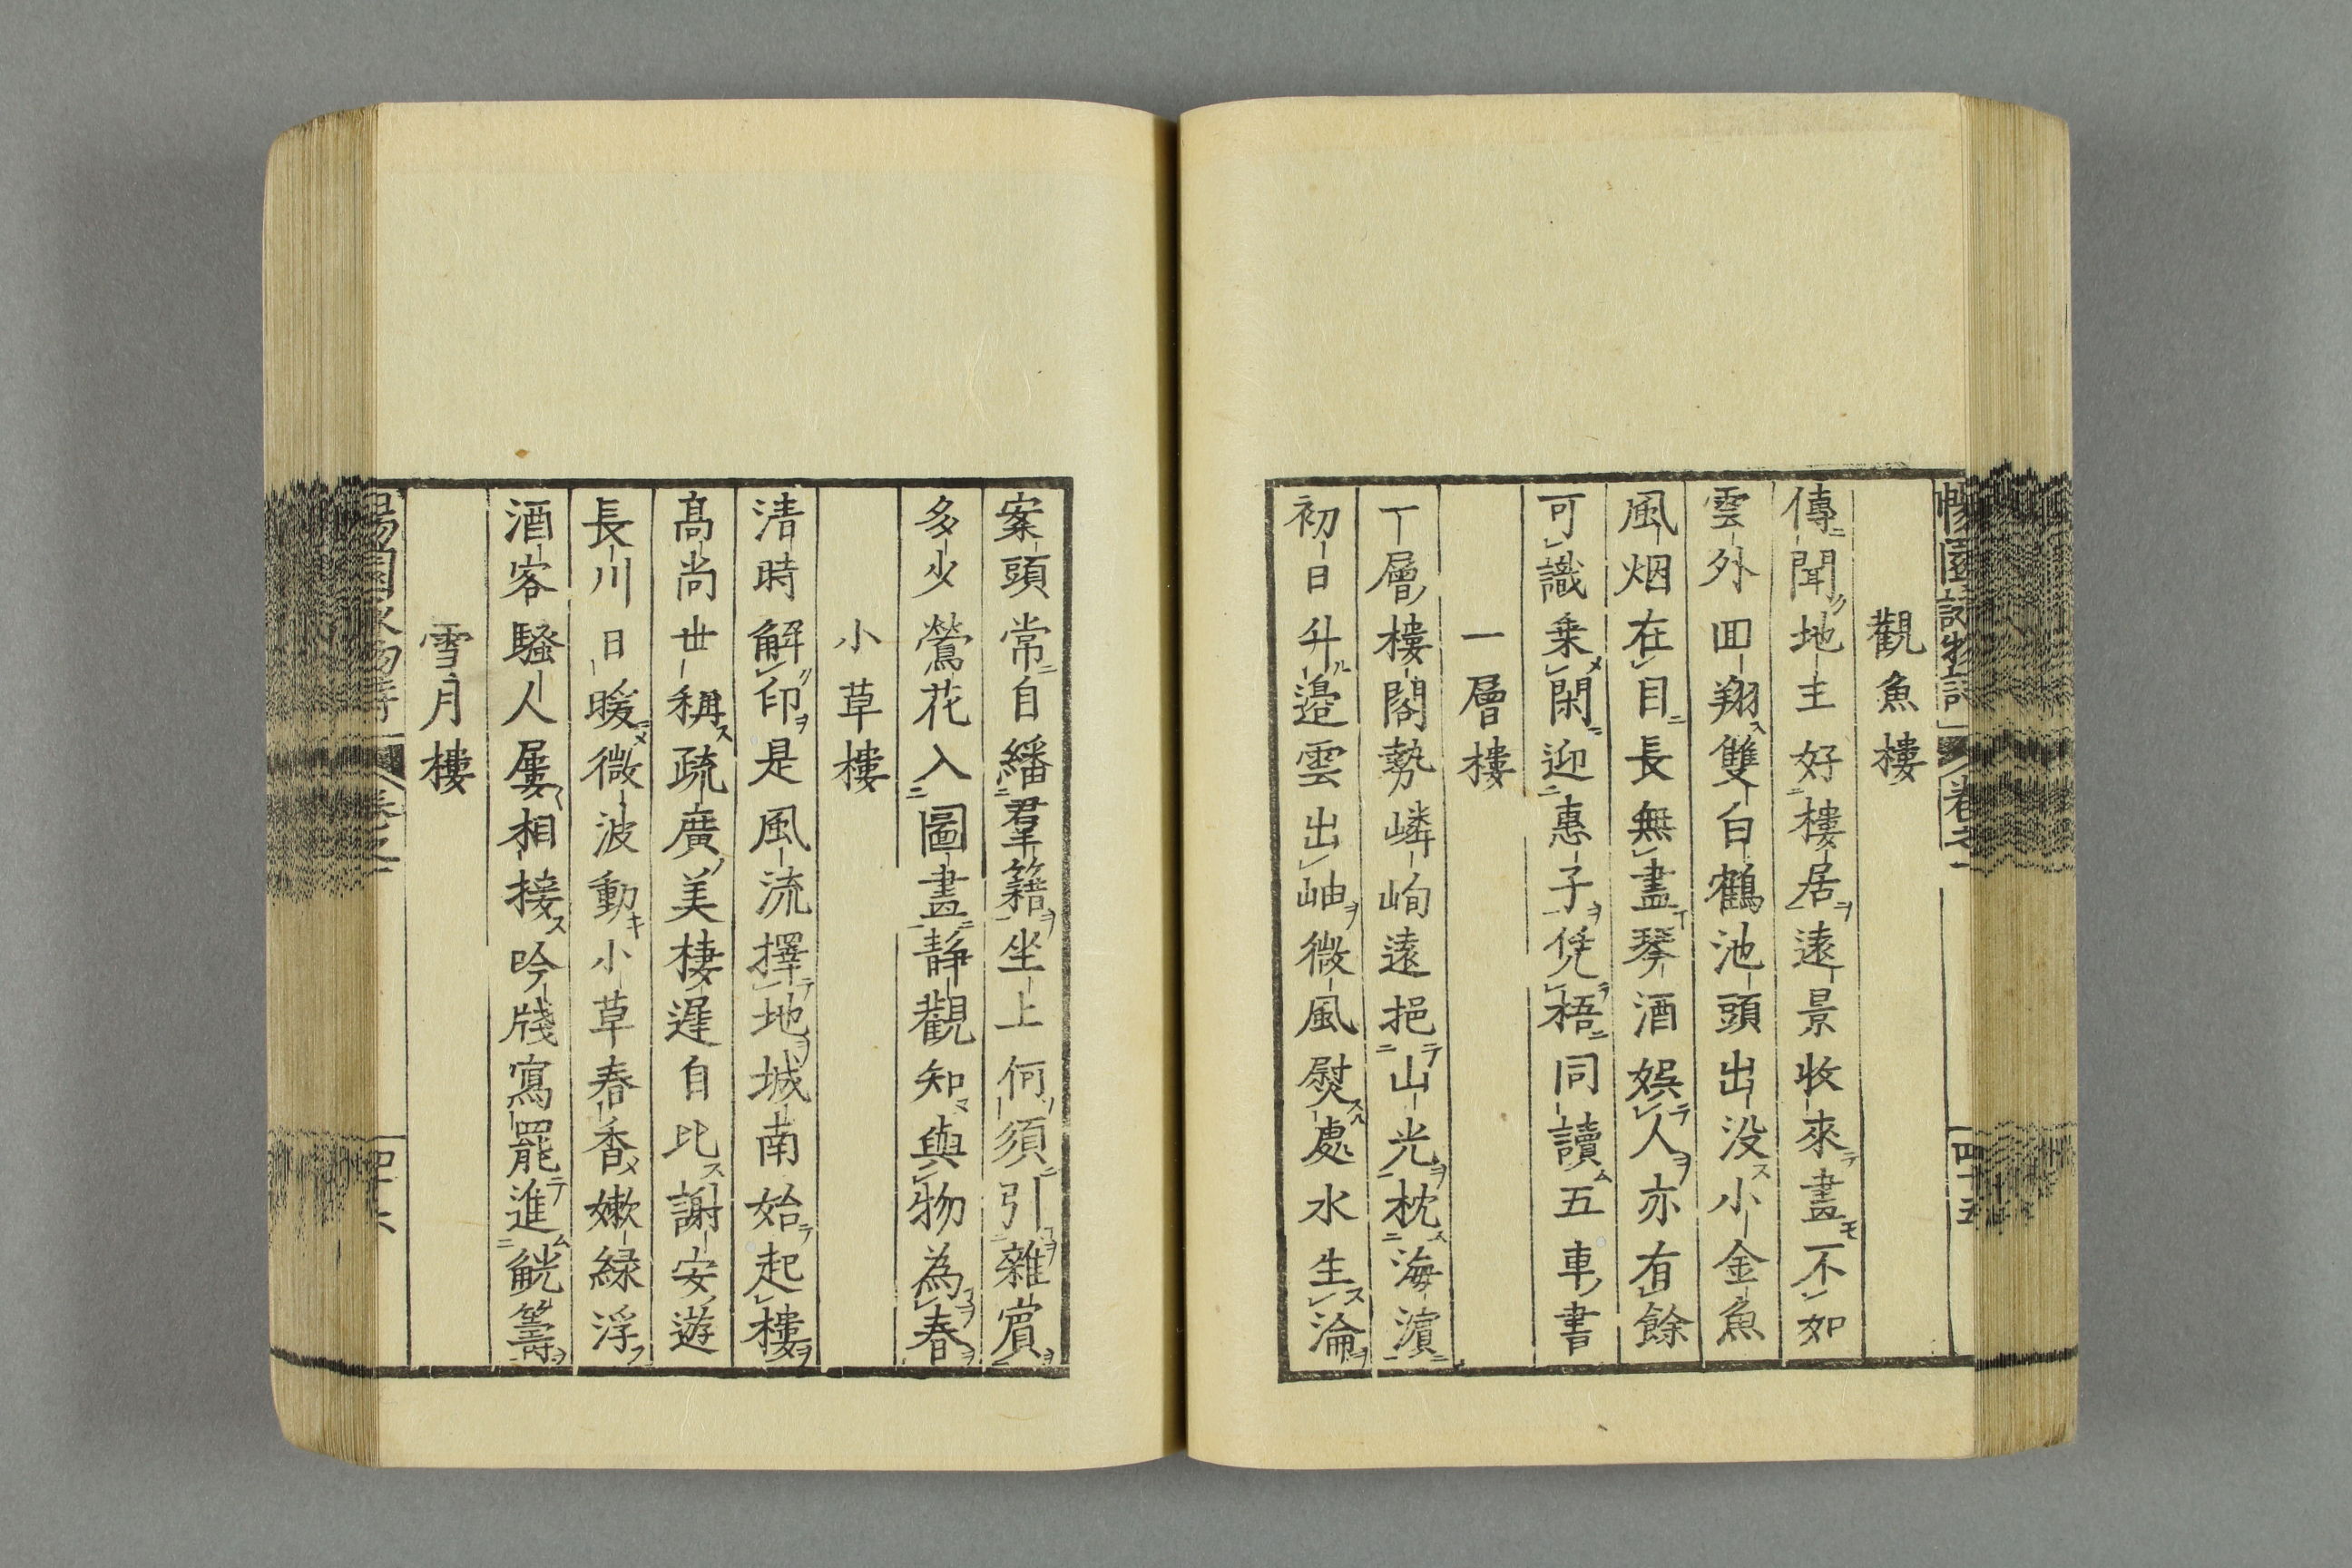 觀魚樓
傳聞地主好樓居遠景收來畫不如
雲外回翔雙白鶴池頭出没小金魚
風烟在目長無盡琴酒娯人亦有餘
可識乗閑迎惠子凭梧同讀五車書
一層樓
一層樓閣勢嶙峋遠挹山光枕海濵
初日升邉雲出岫微風熨處水生淪
案頭常自繙羣籍坐上何須引雜賔
多少鶯花入圖畫静觀知與物為春
小草樓
清時解印是風流擇地城南始起樓
髙尚世稱疏廣美棲遲自比謝安遊
長川日暖微波動小草春香嫩緑浮
酒客騷人屢相接吟牋寫罷進觥籌
雪月樓